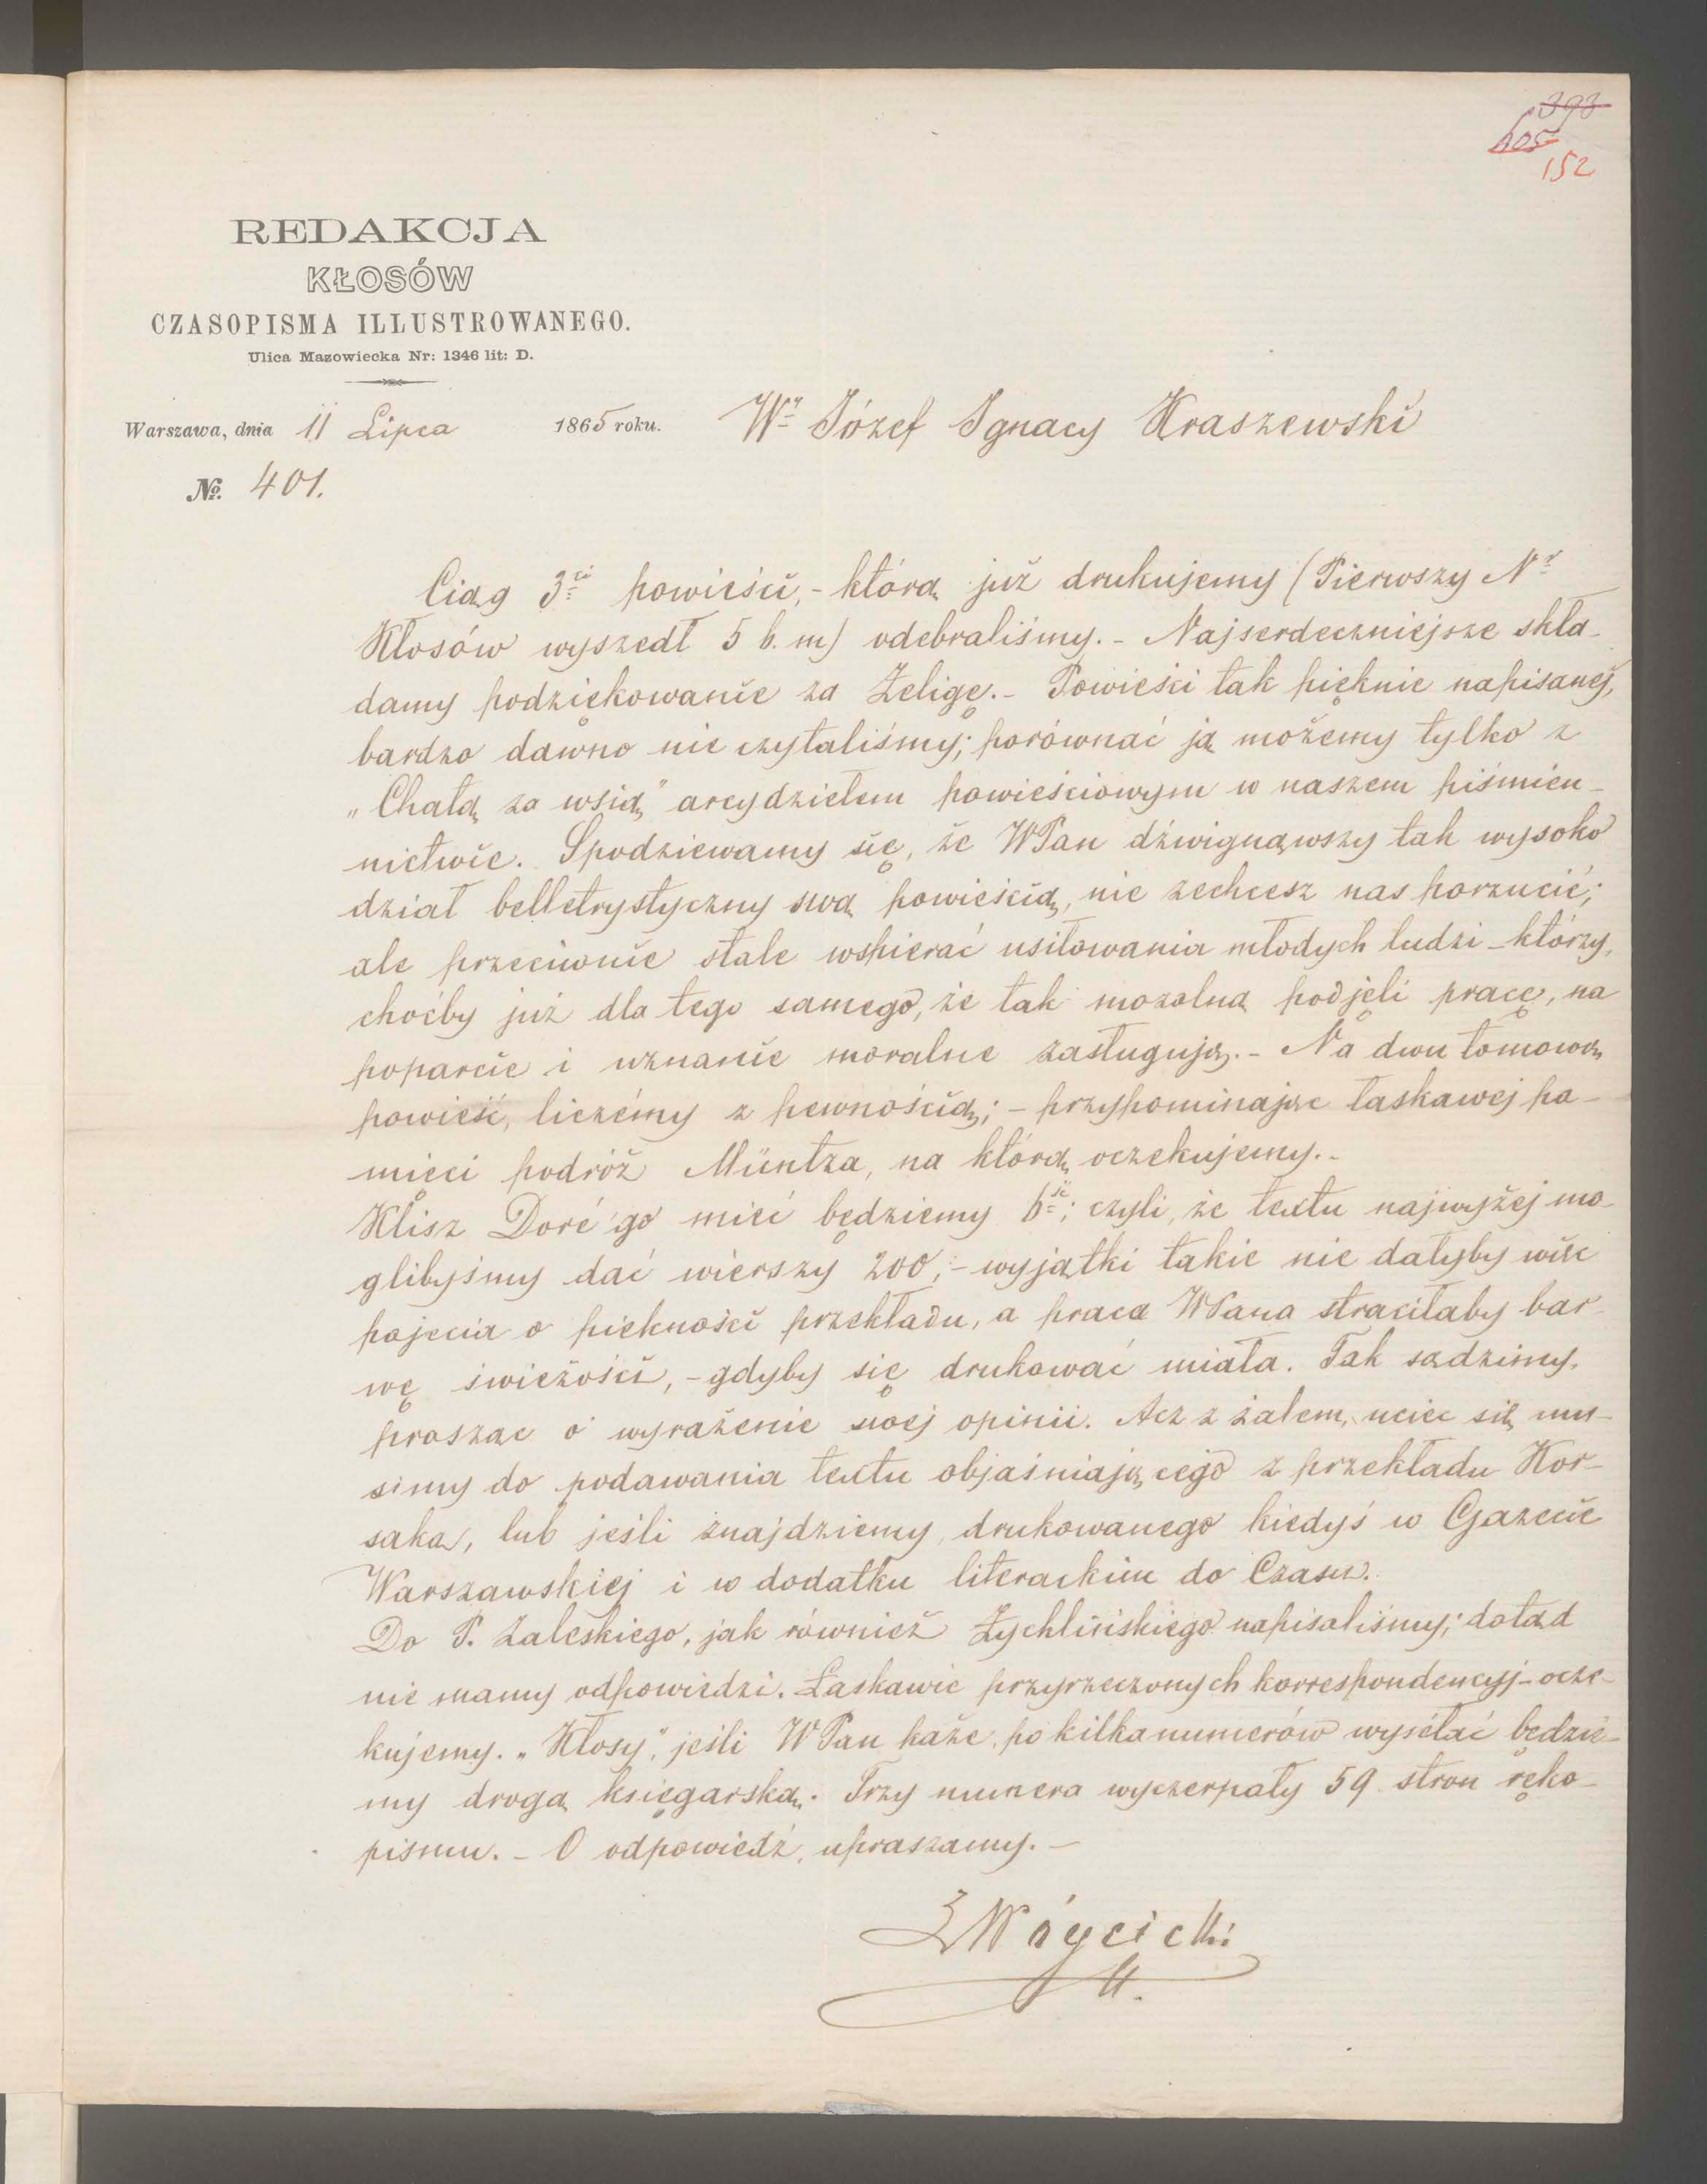 393
605
152
REDAKCJA
KŁOSÓW
CZASOPISMA ILLUSTROWANEGO.
Ulica Mazowiecka Nr: 1346 lit: D.
Warszawa, dnia 11 Lipca 1865 roku.
Wy Józef Ignacy Kraszewski
No. 401.
Ciąg 3ci powieści, - którą już drukujemy (Pierwszy Nr
Kłosów wyszedł 5 b. m) odebraliśmy. - Najserdeczniejsze skła-
damy podziękowanie za Żeligę. - Powieści tak pięknie napisanej,
bardzo dawno nie czytaliśmy; porównać ją możemy tylko z
„Chatą za wsią" arcydziełem powieściowym w naszem piśmien-
nictwie. Spodziewamy się, że WPan dźwignąwszy tak wysoko
dział belletrystyczny swą powieścią, nie zechcesz nas porzucić;
ale przeciwnie stale wspierać usiłowania młodych ludzi - którzy,
choćby już dla tego samego, że tak mozolną podjęli pracę, na
poparcie i uznanie moralne zasługują. - Na dwu tomową
powieść, liczémy z pewnością; - przypominając łaskawej pa-
mięci podróż Müntza, na którą oczekujemy. -
Klisz Doré'go mieć będziemy 6ść; czyli, że textu najwyżej mo-
glibyśmy dać wierszy 200, - wyjątki takie nie dałyby więc
pojęcia o piękności przekładu, a praca WPana straciłaby bar-
wę świeżości, - gdyby się drukować miała. Tak sądzimy,
prosząc o wyrażenie swej opinii. Acz z żalem, uciec się mu-
simy do podawania textu objaśniającego z przekładu Kor-
saka, lub jeśli znajdziemy, drukowanego kiedyś w Gazecie
Warszawskiej i w dodatku literackim do Czasu.
Do P. Zaleskiego, jak również Żychlińskiego napisaliśmy; dotąd
nie mamy odpowiedzi. Łaskawie przyrzeczonych korrespondencyj - ocze-
kujemy. „Kłosy", jeśli WPan każe, po kilka numerów wysełać będzie-
my drogą księgarską. Trzy numera wyczerpały 59 stron ręko-
pismu. - O odpowiedź, upraszamy. -
Wóycicki